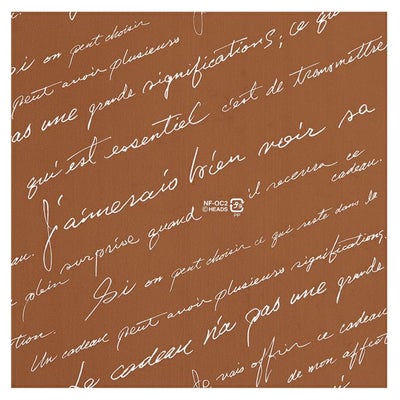 ce qu
Si on peut choisir
peut avoir plusieurs
as une grande significations; ce qu
qu'est essentiel c'est de transmettre
J'aimerais bien voir sa
NF-OC2
©HEADS
PP
au. plein surprise quand il recevra ce cadeau.
Si on peut choisir ce qui reste dans le
peut avoir plusieurs significations;
tion. Un cadeau
Le cadeau n'a pas une grande
Je vais offrir ce cadeau
de mon affect